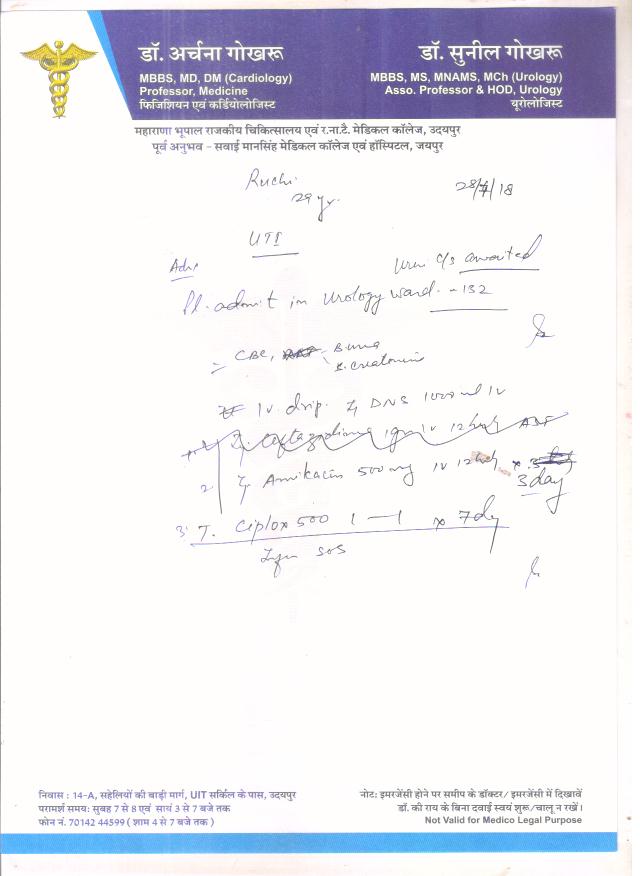 डॉ. अर्चना गोखरू
MBBS, MD, DM (Cardiology)
Professor, Medicine
फिजिशियन एवं कर्डियोलोजिस्ट
डॉ. सुनील गोखरू
MBBS, MS, MNAMS, MCh (Urology)
Asso. Professor & HOD, Urology
यूरोलोजिस्ट
महाराणा भूपाल राजकीय चिकित्सालय एवं र.ना.टै. मेडिकल कॉलेज, उदयपुर
पूर्व अनुभव - सवाई मानसिंह मेडिकल कॉलेज एवं हॉस्पिटल, जयपुर
Ruchi
29 yr.
28/7/18
UTI
Urine C/S awaited
Adv
Pl. admit in Urology ward - 132
CBC, B. urea
S. creatinine
IV drip. DNS 1000 ml IV
Ceftazidime 1gm IV 12 hrly
2 Amikacin 500 mg IV 12 hrly x 3 day
3. T. Ciplox 500 1 — 1 x 7 day
SOS
निवास : 14-A, सहेलियों की बाड़ी मार्ग, UIT सर्किल के पास, उदयपुर
परामर्श समय: सुबह 7 से 8 एवं सायं 3 से 7 बजे तक
फोन नं. 70142 44599 ( शाम 4 से 7 बजे तक )
नोट: इमरजेंसी होने पर समीप के डॉक्टर/ इमरजेंसी में दिखावें
डॉ. की राय के बिना दवाई स्वयं शुरू/चालू न रखें।
Not Valid for Medico Legal Purpose